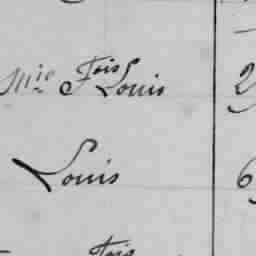 Mie Fois Louis 2
Louis 6
Fois